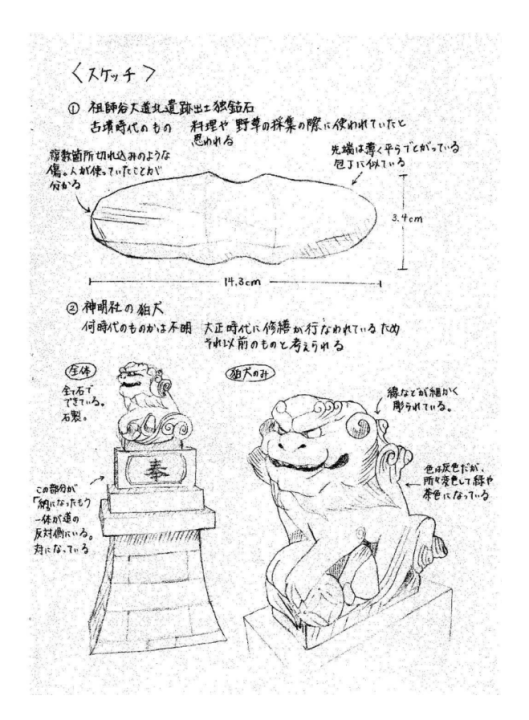 〈スケッチ〉
① 祖師谷大道北遺跡出土独鈷石
古墳時代のもの 料理や野草の採集の際に使われていたと
思われる
複数箇所切れ込みのような
傷。人が使っていたことが
分かる
先端は薄く平らでとがっている
包丁に似ている
3.4cm
14.3cm
② 神明社の狛犬
何時代のものかは不明 大正時代に修繕が行なわれているため
それ以前のものと考えられる
全体
全て石で
できている。
石製。
奉
この部分が
「納」になったもう
一体が道の
反対側にいる。
対になっている
狛犬のみ
線などが細かく
彫られている。
色は灰色だが、
所々変色して緑や
茶色になっている